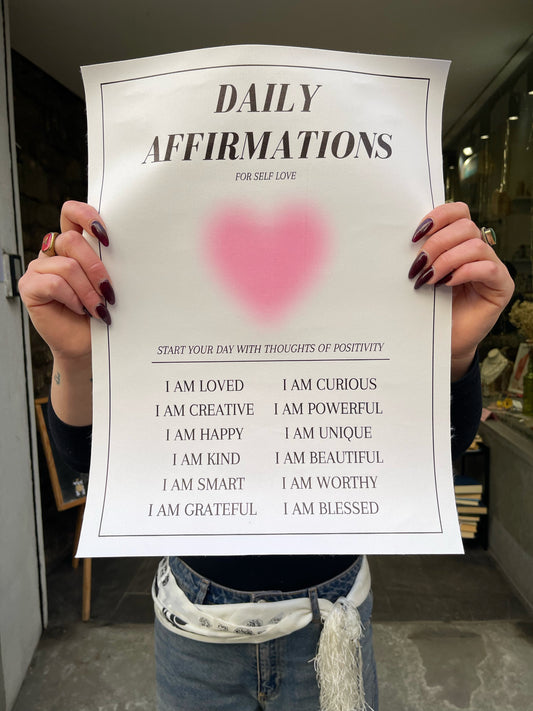 DAILY
AFFIRMATIONS
FOR SELF LOVE
START YOUR DAY WITH THOUGHTS OF POSITIVITY
I AM LOVED
I AM CREATIVE
I AM HAPPY
I AM KIND
I AM SMART
I AM GRATEFUL
I AM CURIOUS
I AM POWERFUL
I AM UNIQUE
I AM BEAUTIFUL
I AM WORTHY
I AM BLESSED